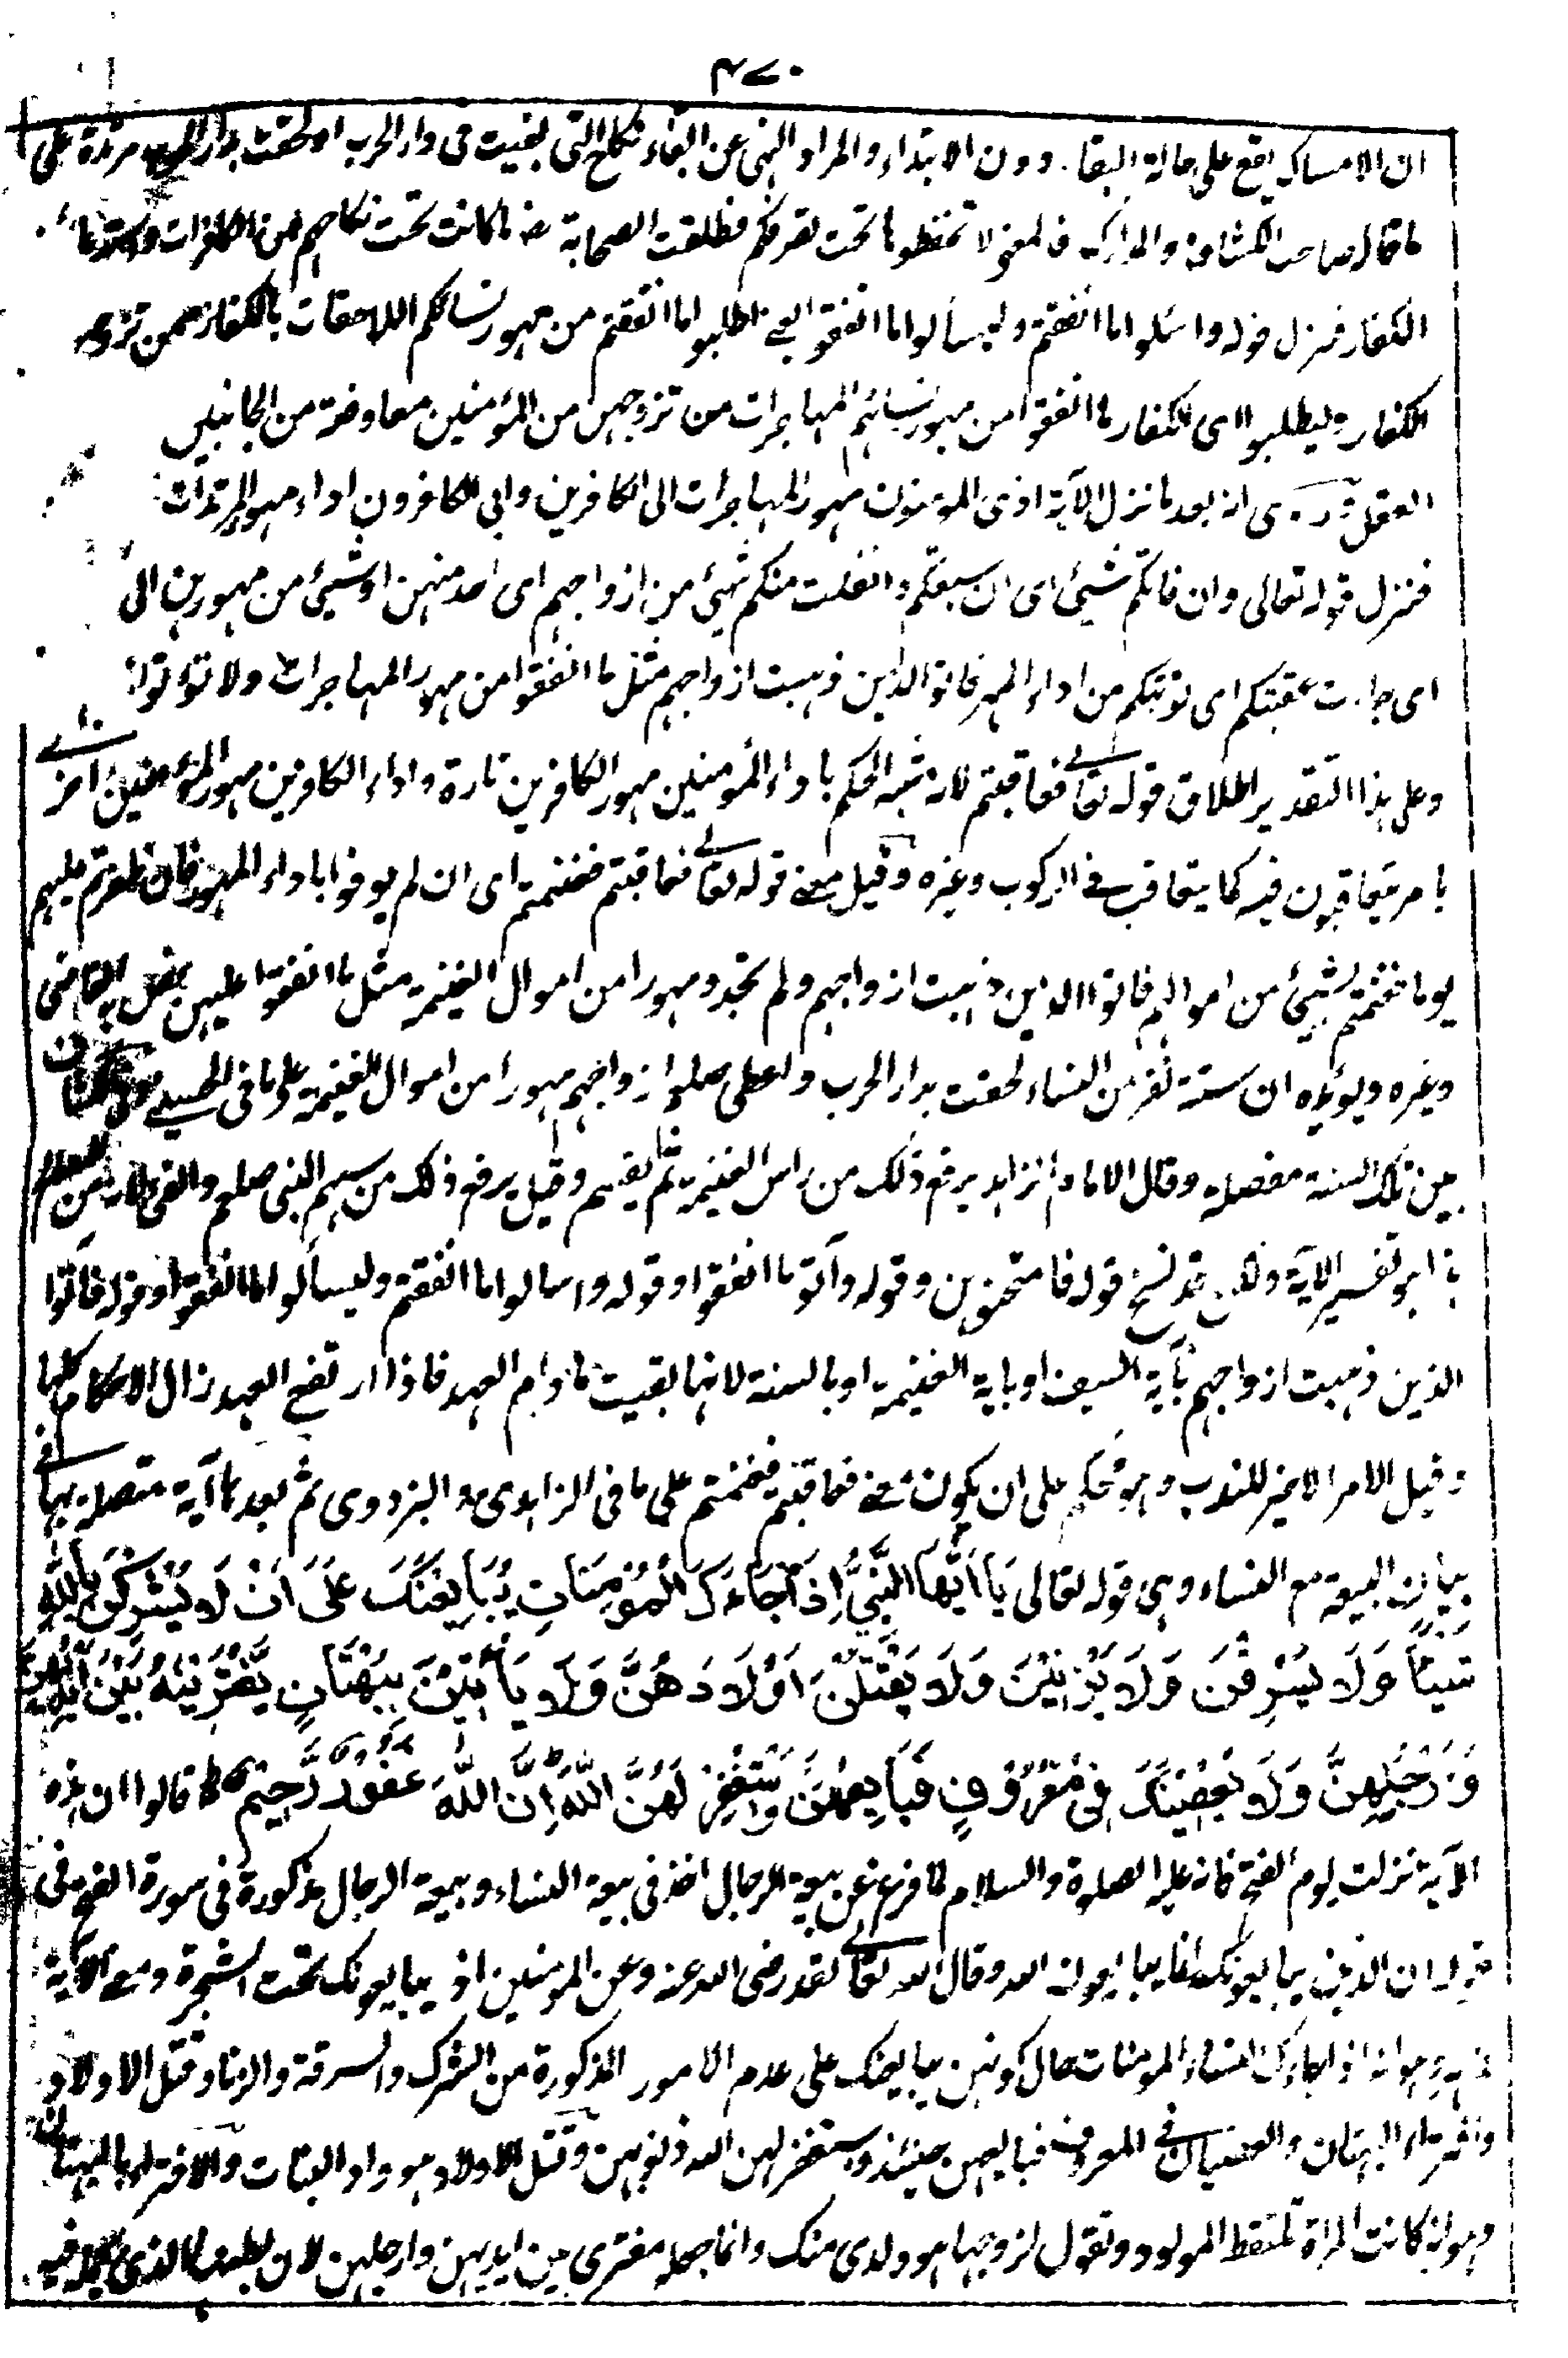 ٤٧٠
ان الامساك يقع على حالة البقاء دون الابتداء والمراد النهى عن ابقاء نكاح التى بقيت فى دار الحرب او لحقت بدار الحرب مرتدة على
ما قال صاحب الكشاف والمدارك فالمعنى لا تحفظوها تحت تصرفكم فطلقت الصحابة رض ما كانت تحت نكاحهم من الكافرات
الكفار فنزل قوله واسئلوا ما انفقتم وليسألوا ما انفقوا يعنى اطلبوا ما انفقتم من مهور نسائكم اللاحقات بالكفار ممن تزوجه
الكفار وليطلبوا اى الكفار ما انفقوا من مهور نسائهم المهاجرات من تزوجهن من المؤمنين معاوضة من الجانبين
العقل وروى انه بعد ما نزل الآية ادى المؤمنون مهور المهاجرات الى الكافرين وابى الكافرون اداء مهور المرتدات
فنزل قوله تعالى وان فاتكم شيئ اى ان سبقكم وانفلت منكم شيئ من ازواجهم اى احد منهن او شيئ من مهورهن الى
اى جاءت عقبتكم اى نوبتكم من اداء المهر فاتوا الذين ذهبت ازواجهم مثل ما انفقوا من مهور المهاجرات ولا تؤتوا
وعلى هذا التقدير اطلاق قوله تعالى فعاقبتم لانه شبه الحكم باداء المؤمنين مهور الكافرين تارة واداء الكافرين مهور المؤمنين اخرى
بامر يتعاقبون فيه كما يتعاقب فى الركوب وغيره وقيل معنى قوله تعالى فعاقبتم فغنمتم اى ان لم يوفوا باداء المهور فان ظفرتم عليهم
يوما فغنمتم بشيئ من اموالهم فاتوا الذين ذهبت ازواجهم ولم تجد ومهورا من اموال الغنيمة مثل ما انفقوا عليهن نص به القاضى
وغيره ويؤيده ان ستة نفر من النساء لحقت بدار الحرب واعطى صلعم ازواجهم مهورا من اموال الغنيمة على ما فى الحسينى
بين تلك الستة مفصلة وقال الامام الزاهد يرفع ذلك من راس الغنيمة ثم يقسم وقيل يرفع ذلك من سهم النبى صلعم
هذا هو تفسير الآية وقد نسخ قوله فامتحنوهن وقوله وآتوهم ما انفقوا وقوله واسالوا ما انفقتم وليسألوا ما انفقوا وقوله فآتوا
الذين ذهبت ازواجهم بآية السيف او باية الغنيمة او بالسنة لانها بقيت ما دام العهد فاذا ارتفع العهد زال الاحكام كلها
وقيل الامر الاخير للندب وهو محكم على ان يكون معنى فعاقبتم فغنمتم على ما فى الزاهدى والبزدوى ثم بعدها آية متصلة بها فى
بيان البيعة مع النساء وهى قوله تعالى يَا اَيُّهَا النَّبِيُّ اِذَا جَاءَكَ الْمُؤْمِنَاتِ يُبَايِعْنَكَ عَلَى اَنْ لَا يُشْرِكْنَ بِاللهِ
شَيْئًا وَلَا يَسْرِقْنَ وَلَا يَزْنِيْنَ وَلَا يَقْتُلْنَ اَوْلَادَهُنَّ وَلَا يَأْتِيْنَ بِبُهْتَانٍ يَّفْتَرِيْنَهُ بَيْنَ اَيْدِيْهِنَّ
وَاَرْجُلِهِنَّ وَلَا يَعْصِيْنَكَ فِى مَعْرُوْفٍ فَبَايِعْهُنَّ وَاسْتَغْفِرْ لَهُنَّ اللهَ اِنَّ اللهَ غَفُوْرٌ رَّحِيْمٌ قالوا ان هذه
الآية نزلت يوم الفتح فانه عليه الصلوة والسلام لما فرغ عن بيعة الرجال اخذ فى بيعة النساء وبيعة الرجال مذكورة فى سورة الفتح فى
قوله ان الذين يبايعونك انما يبايعون الله وقال الله تعالى لقد رضى الله عنه وعن المومنين اذ يبايعونك تحت الشجرة ومعنى الآية
هذه هو انه اذا جاءك النساء المومنات حال كونهن يبايعنك على عدم الامور المذكورة من الشرك والسرقة والزنا وقتل الاولاد
وافتراء البهتان والعصيان فى المعروف فبايعهن حينئذ واستغفر لهن الله ذنوبهن وقتل الاولاد هو واد البنات والافتراء بالبهتان
وهو انه كانت المراة تلتقط المولود وتقول لزوجها هو ولدى منك وانما جعله مفترى بين ايديهن وارجلهن لان بطنها الذى تحمله فيه